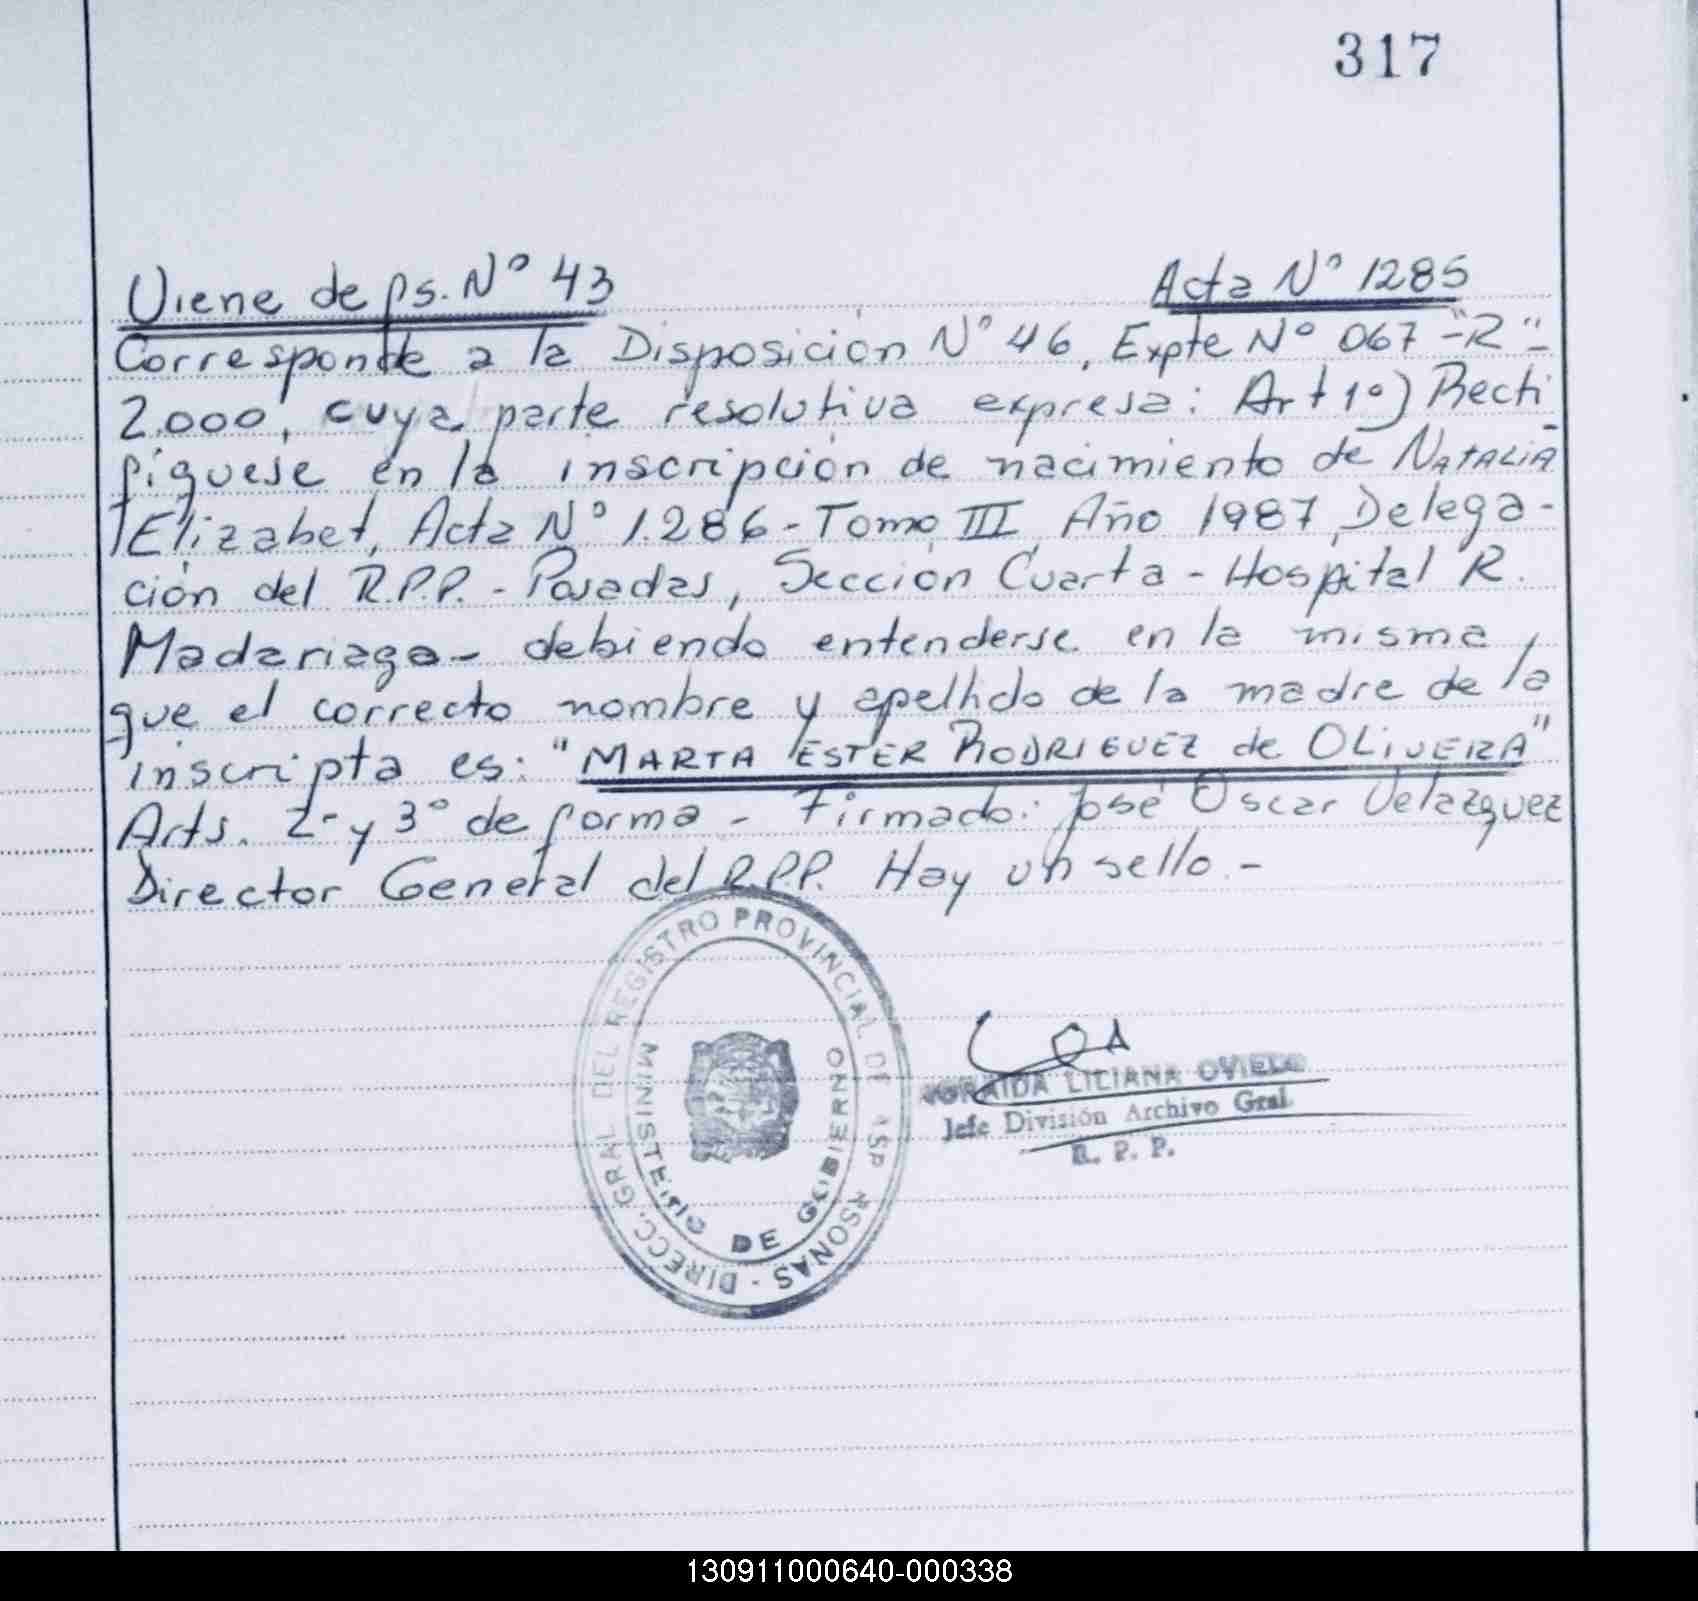 317
Viene de fs. Nº 43 Acta Nº 1285
Corresponde a la Disposición Nº 46, Expte Nº 067 -"R"-
2.000, cuya parte resolutiva expresa: Art 1º) Recti
fíquese en la inscripción de nacimiento de NATALIA
Elizabet, Acta Nº 1.286 - Tomo III Año 1987, Delega-
ción del R.P.P. - Posadas, Sección Cuarta - Hospital R.
Madariaga - debiendo entenderse en la misma,
que el correcto nombre y apellido de la madre de la
inscripta es: "MARTA ESTER RODRIGUEZ de OLIVEIRA"
Arts. 2º y 3º de forma - Firmado: José Oscar Velazquez
Director General del R.P.P. Hay un sello.-
DIRECC. GRAL DEL REGISTRO PROVINCIAL DE PERSONAS -
MINISTERIO DE GOBIERNO
LILIANA OVIEDO
Jefe División Archivo Gral.
R. P. P.
130911000640-000338